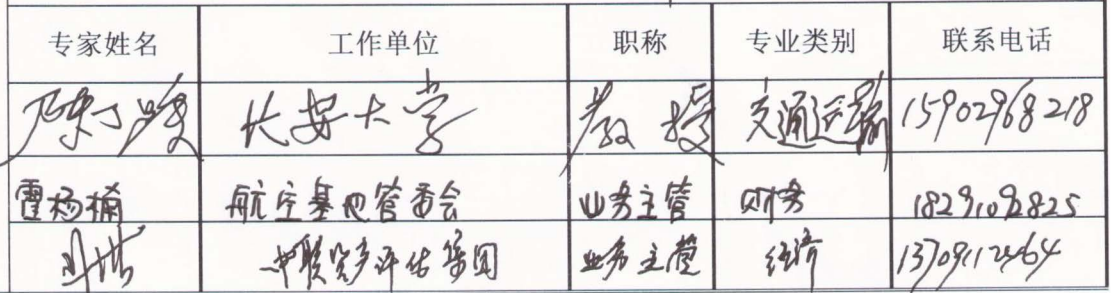 专家姓名 工作单位 职称 专业类别 联系电话
陈 长安大学 教授 交通运输 15902968218
霍杨楠 航空基地管委会 业务主管 财务 18291092825
中联资产评估集团 业务主管 经济